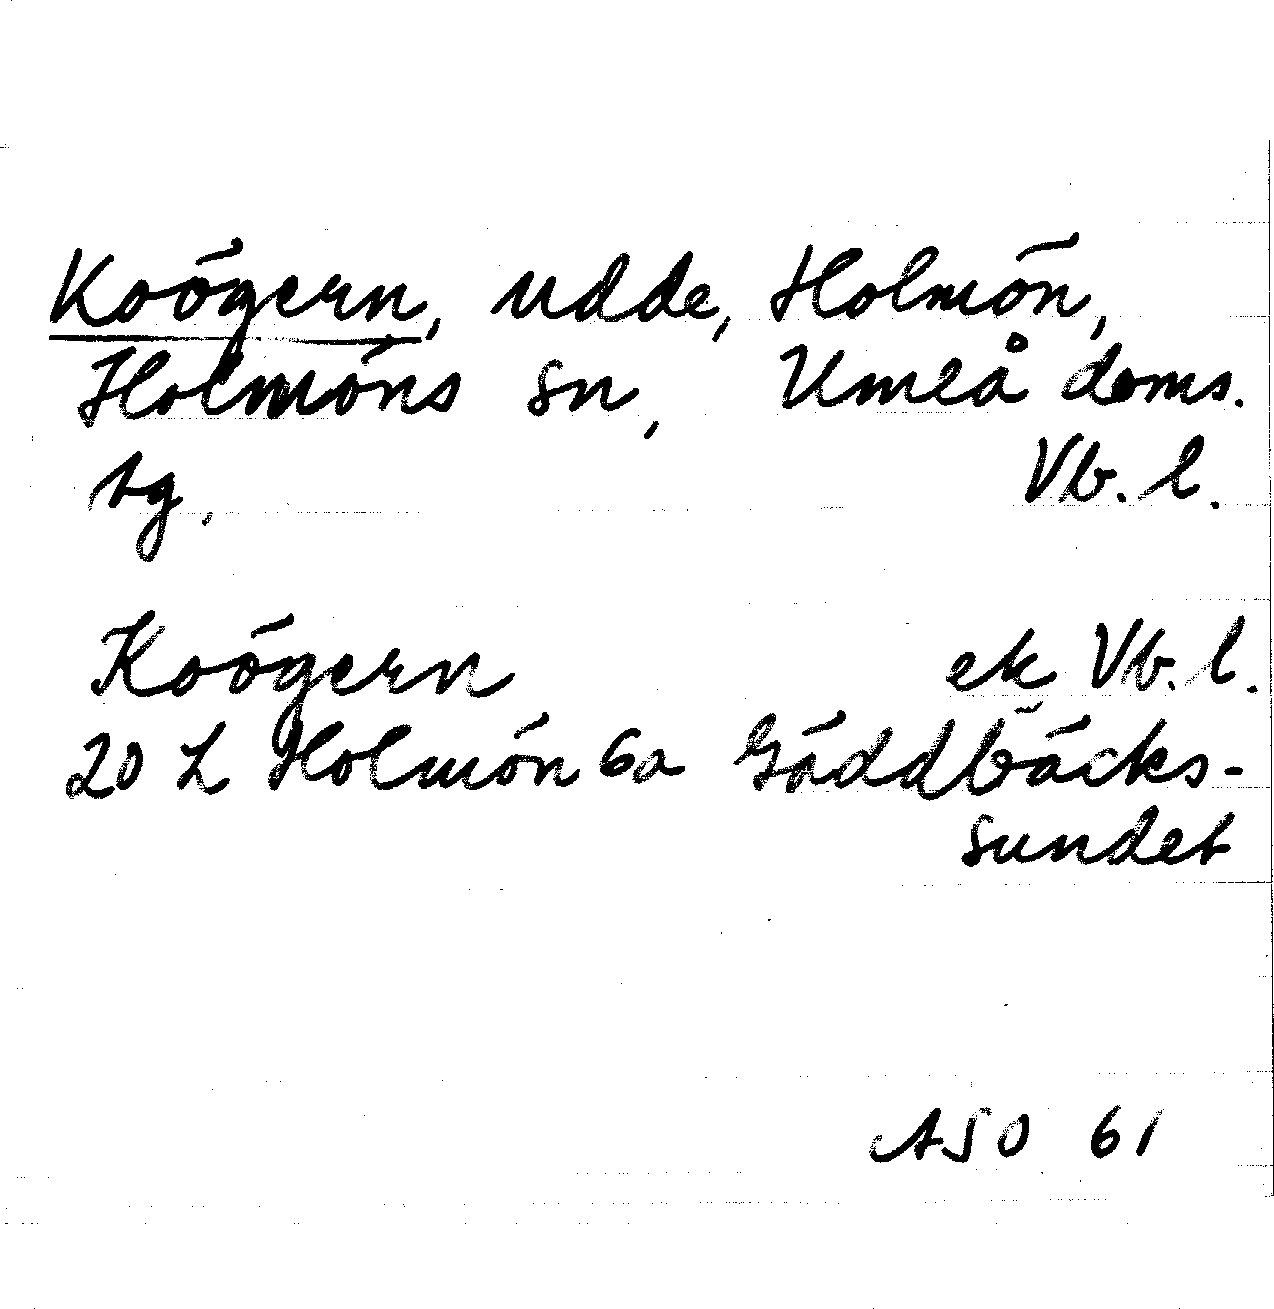 Koögern, udde, Holmön,
Holmöns sn, Umeå doms.
tg. Vb. l.
Koögern ek Vb. l.
20 L Holmön 6a Gäddbäcks-
sundet
ASO 61